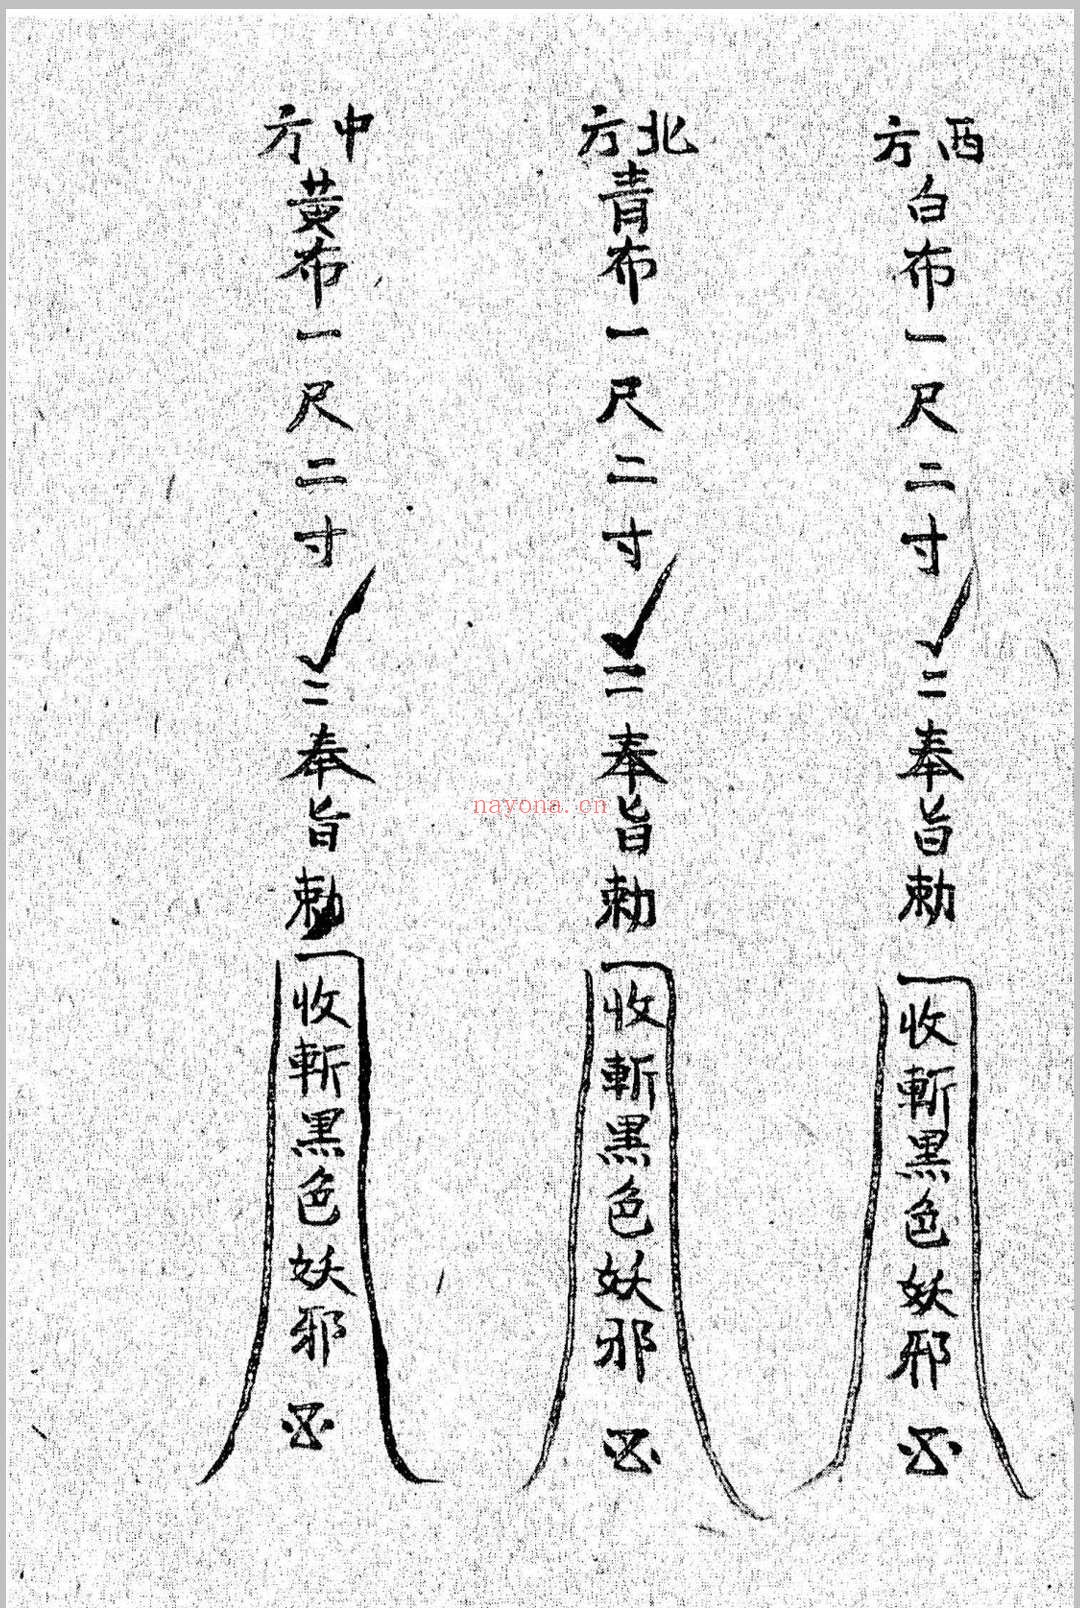 西方
白布一尺二寸
二奉旨勅
收斬黑色妖邪
北方
青布一尺二寸
二奉旨勅
收斬黑色妖邪
中方
黃布一尺二寸
二奉旨勅
收斬黑色妖邪
nayona.cn